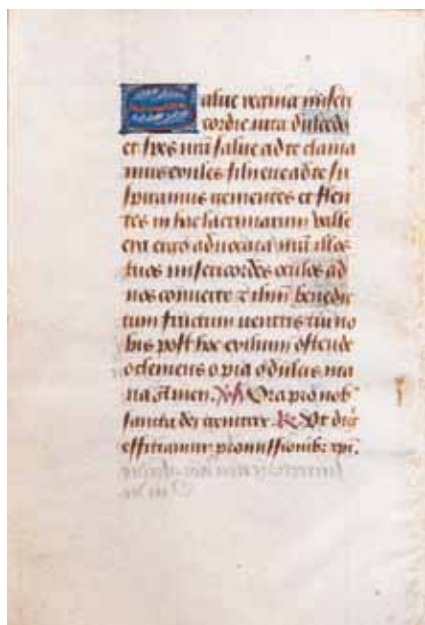 Salve regina miseri
cordie vita dulcedo
et spes nr̃a salve ad te clama
mus exules filii eve ad te su
spiramus gementes et flen
tes in hac lacrimarum valle
eya ergo advocata nr̃a illos
tuos misericordes oculos ad
nos converte et ihm̃ benedic
tum fructum ventris tui no
bis post hoc exilium ostende
o clemens o pia o dulcis ma
ria Amen. V Ora pro nob
sancta dei genitrix. R Vt dig
efficiamur promissionib xpi.